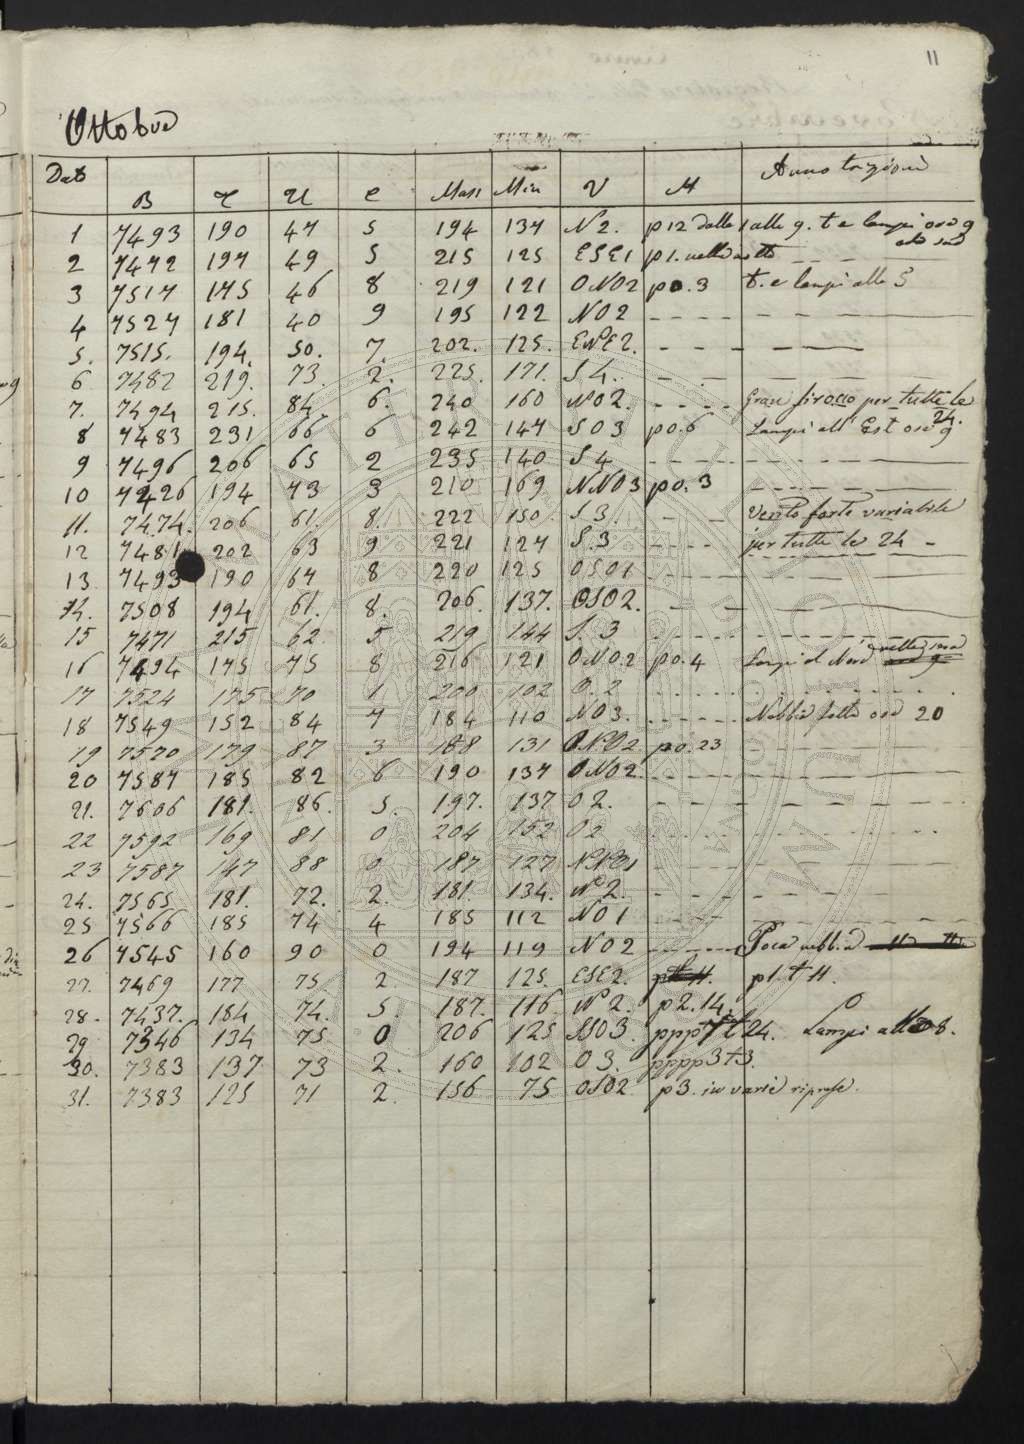 11
Ottobre
Data B T U C Mass Min V M Annotazioni
1 7493 190 47 5 194 137 NO2. p 12 dalle 1 alle 9. t e lampi ore 9
2 7472 197 49 5 215 125 ESE1 p 1. nella notte
3 7517 175 46 8 219 121 ONO2 p 0.3 t. e lampi alle 5
4 7527 181 40 9 195 122 NO2
5. 7515. 194. 50. 7. 202. 125. ENE2.
6 7482 219. 73. 2. 225. 171. S 4.
7. 7494 215. 84. 6. 240 160 NO2. Gran sirocco per tutte le 24.
8 7483 231 66 6 242 147 SO3 p 0.6 Lampi all' Est ore 9
9 7496 206 65 2 235 140 S 4
10 7426 194 73 3 210 169 NNO3 p 0.3
11. 7474. 206 61. 8. 222 150. S 3. Vento forte variabile
12 7481 202 63 9 221 127 S. 3 per tutte le 24
13 7493 190 67 8 220 125 OSO1
14. 7508 194 61. 8. 206. 137. OSO2.
15 7471 215 62. 5 219 144 S. 3
16 7494 175 75 8 216 121 ONO2 p 0.4 Lampi al Nord nella sera
17 7524 175 70 1 200 102 O. 2
18 7549 152 84 7 184 110 NO3. Nebbia folta ore 20
19 7570 179 87 3 188 131 ONO2 p 0.23
20 7587 185 82 6 190 137 ONO2
21. 7606 181. 86. 5. 197. 137 O 2.
22 7592 169 81 0 204 152 O 2
23 7587 147 88 0 187 127 NNO1
24. 7565 181. 72. 2. 181. 134. NO 2.
25 7566 185 74 4 185 112 NO 1
26 7545 160 90 0 194 119 NO2 Poca nebbia
27. 7469 177 75 2. 187 125. ESE2. p 1. t 11.
28. 7437. 184 74. 5. 187. 116. NO 2. p 2.14.
29 7346 134 75 0 206 125 SSO3. pppp 7 t 24. Lampi all' O 8.
30. 7383 137 73 2. 160 102 O 3. pppp 3 t 3.
31. 7383 125 71 2. 156 75 OSO2 p 3. in varie riprese.